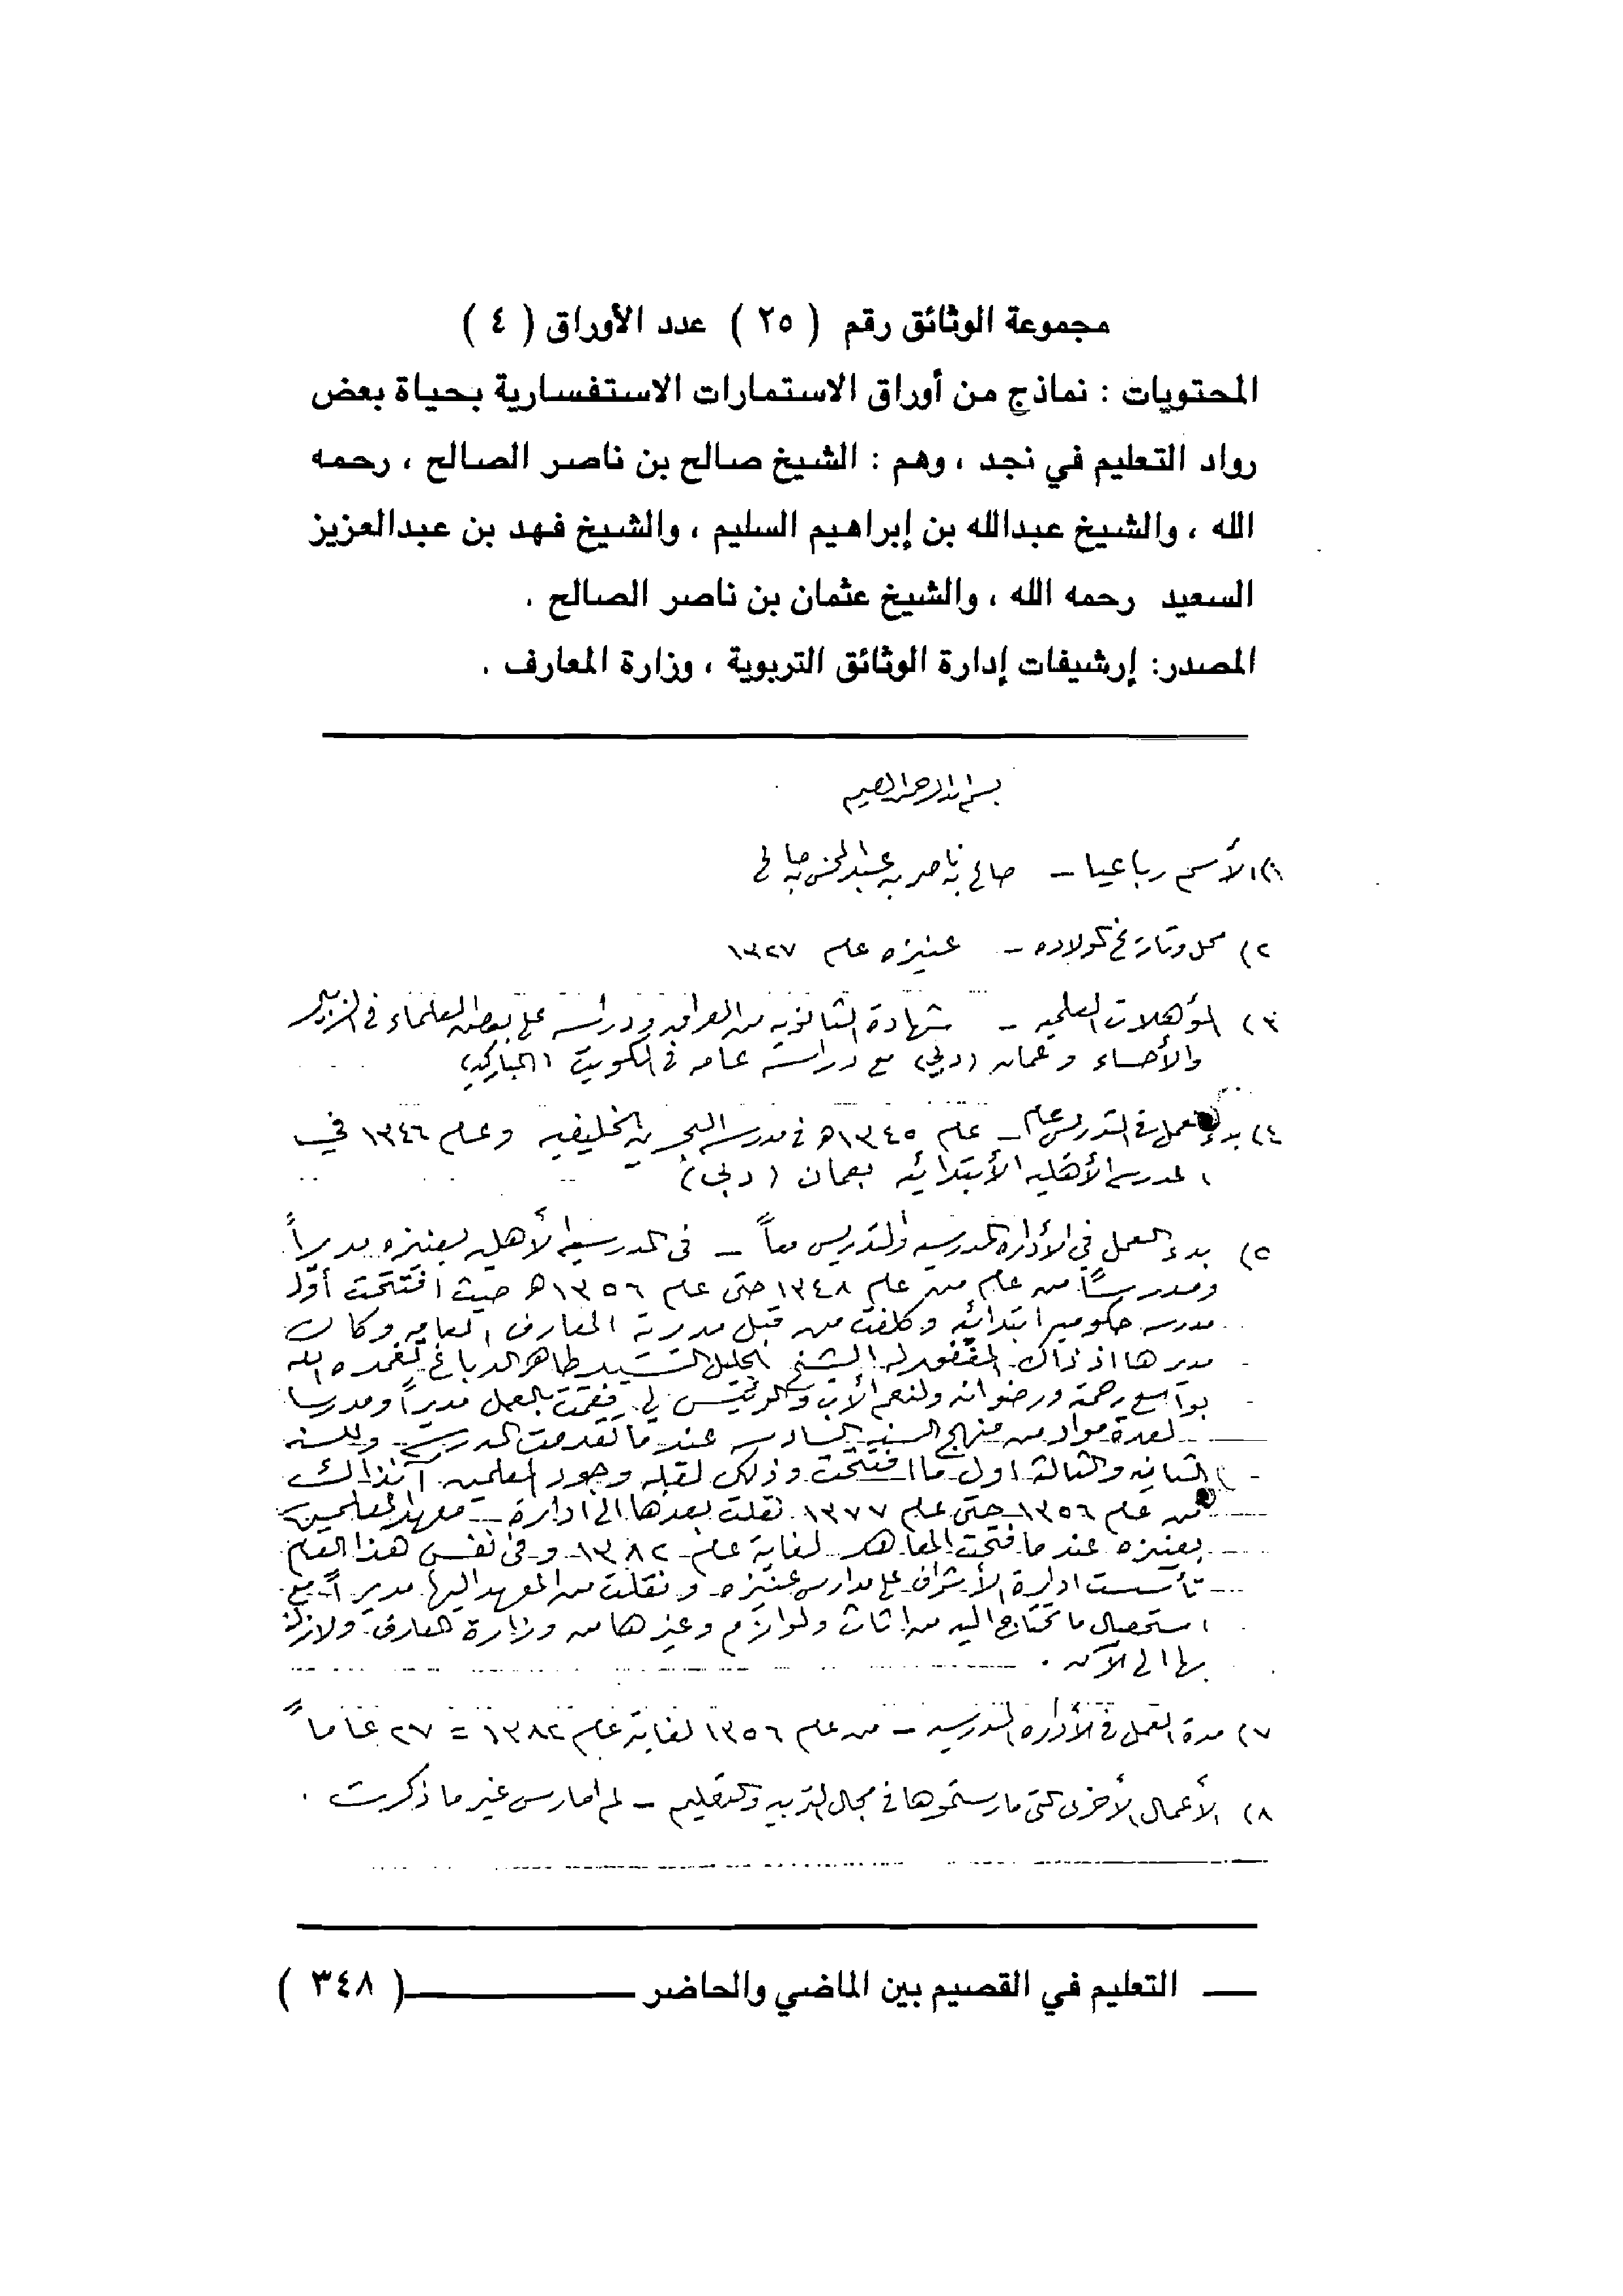 مجموعة الوثائق رقم ( ٢٥ ) عدد الأوراق ( ٤ )
المحتويات : نماذج من أوراق الاستمارات الاستفسارية بحياة بعض
رواد التعليم في نجد ، وهم : الشيخ صالح بن ناصر الصالح ، رحمه
الله ، والشيخ عبدالله بن إبراهيم السليم ، والشيخ فهد بن عبدالعزيز
السعيد رحمه الله ، والشيخ عثمان بن ناصر الصالح .
المصدر: إرشيفات إدارة الوثائق التربوية ، وزارة المعارف .
بسم الله الرحمن الرحيم
١) الأسم رباعيا – صالح بن ناصر بن عبدالمحسن صالح
٢) محل وتاريخ الولاده – عنيزه عام ١٣٢٧
٣) المؤهلات العلميه – شهادة الثانويه من العراق ودراسه على بعض العلماء في الزبير
والأحساء وعمان (دبي) مع دراسه عامه في الكويت (المباركيه)
٤) بدء العمل في التدريس عام – عام ١٣٤٥ه في مدرسة البحرين الخليفيه وعام ١٣٤٦ في
المدرسه الأهليه الأبتدائيه بعمان (دبي)
٥) بدء العمل في الأداره المدرسيه والتدريس معاً – في المدرسه الأهليه بعنيزه مديراً
ومدرساً من عام من عام ١٣٤٨ حتى عام ١٣٥٦ه حيث افتتحت أول
مدرسه حكوميه ابتدائيه وكلفت من قبل مديرية المعارف العامه وكان
مديرها اذ ذاك المغفور له الشيخ الجليل السيد طاهر الدباغ تغمده الله
بواسع رحمته ورضوانه ولنعم الأب والرئيس لي فقمت بالعمل مديراً ومدرسا
لعدة مواد من منهج السنه السادسه عندما تقدمت المدرسه وللسنه
الثانيه والثالثه اول ما افتتحت وذلك لقلة وجود المعلمين آنذاك
من عام ١٣٥٦ حتى عام ١٣٧٧ نقلت بعدها الى ادارة معهد المعلمين
بعنيزه عندما فتحت المعاهد لغاية عام ١٣٨٢ وفي نفس هذا العام
تأسست ادارة الأشراف على مدارس عنيزه ونقلت من المعهد اليها مديراً مع
استحصال ما تحتاج اليه من اثاث ولوازم وغيرها من وزارة المعارف ولازلت
بها الى الآن .
٧) مدة العمل في الأداره المدرسيه – من عام ١٣٥٦ لغاية عام ١٣٨٢ = ٢٧ عاماً
٨) الأعمال الأخرى التي مارستموها في مجال التربيه والتعليم – لم امارس غير ما ذكرت .
التعليم في القصيم بين الماضي والحاضر ( ٣٤٨ )